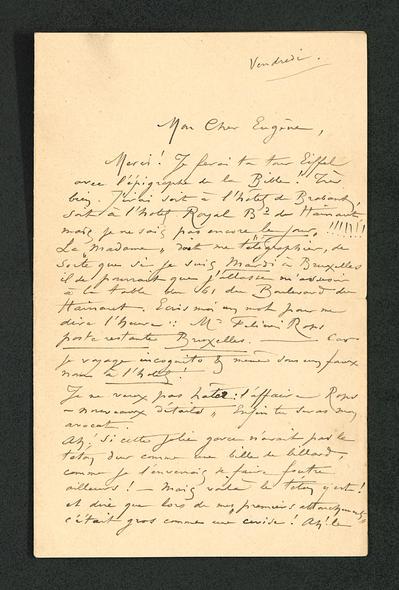 Vendredi.
Mon Cher Eugène,
Merci! Je ferai ta tour Eiffel
avec l'épigraphe de la Bible! Très
bien. J'irai soit à l'hotel de Brabant,
soit à l'hotel Royal Bd de Hainaut
mais je ne sais pas encore le jour, !!!!!!!
La "Madame" doit me télégraphier, de
sorte que si je suis Mardi à Bruxelles
il se pourrait que j'allasse m'asseoir
à la table du 61 du Boulevard du
Hainaut. Ecris moi un mot pour me
dire l'heure :: Mr Félicien Rops
poste restante Bruxelles. — Car
je voyage incognito & même sous un faux
nom à l'hotel!
Je ne veux pas hater: l'affaire Rops
— nouveaux détails „ Enfin tu seras mon
avocat.
Ah! si cette jolie garce n'avait pas le
teton dur comme une bille de billard,
comme je l'enverrais se faire foutre
ailleurs! — Mais voilà le teton y est!
et dire que lors de mes premiers attouchements,
c'était gros comme une cerise! Ah! le